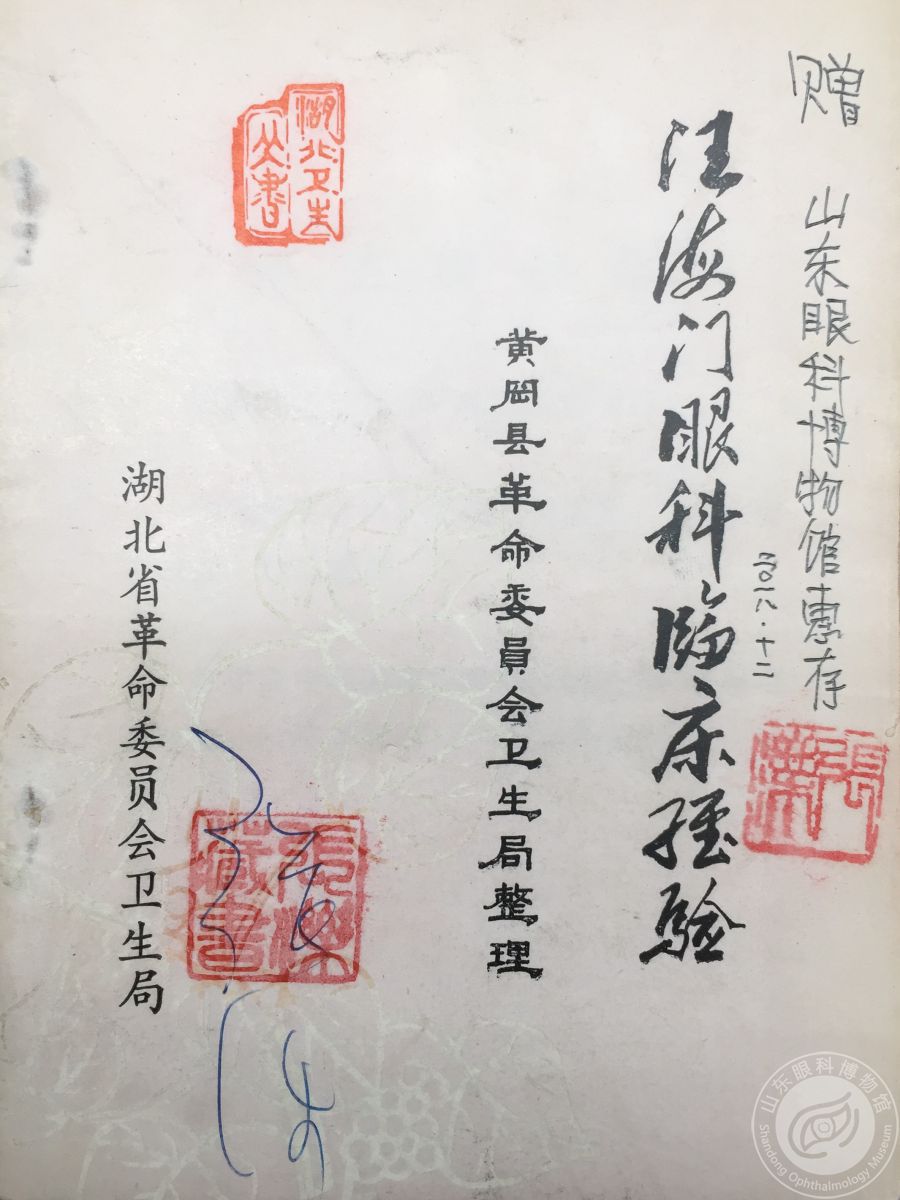 赠 山东眼科博物馆惠存
二〇一八·十二
汪海门眼科临床经验
黄冈县革命委員会卫生局整理
湖北卫生
丛书
湖北省革命委员会卫生局
藏書
山东眼科博物馆
Shandong Ophthalmology Museum